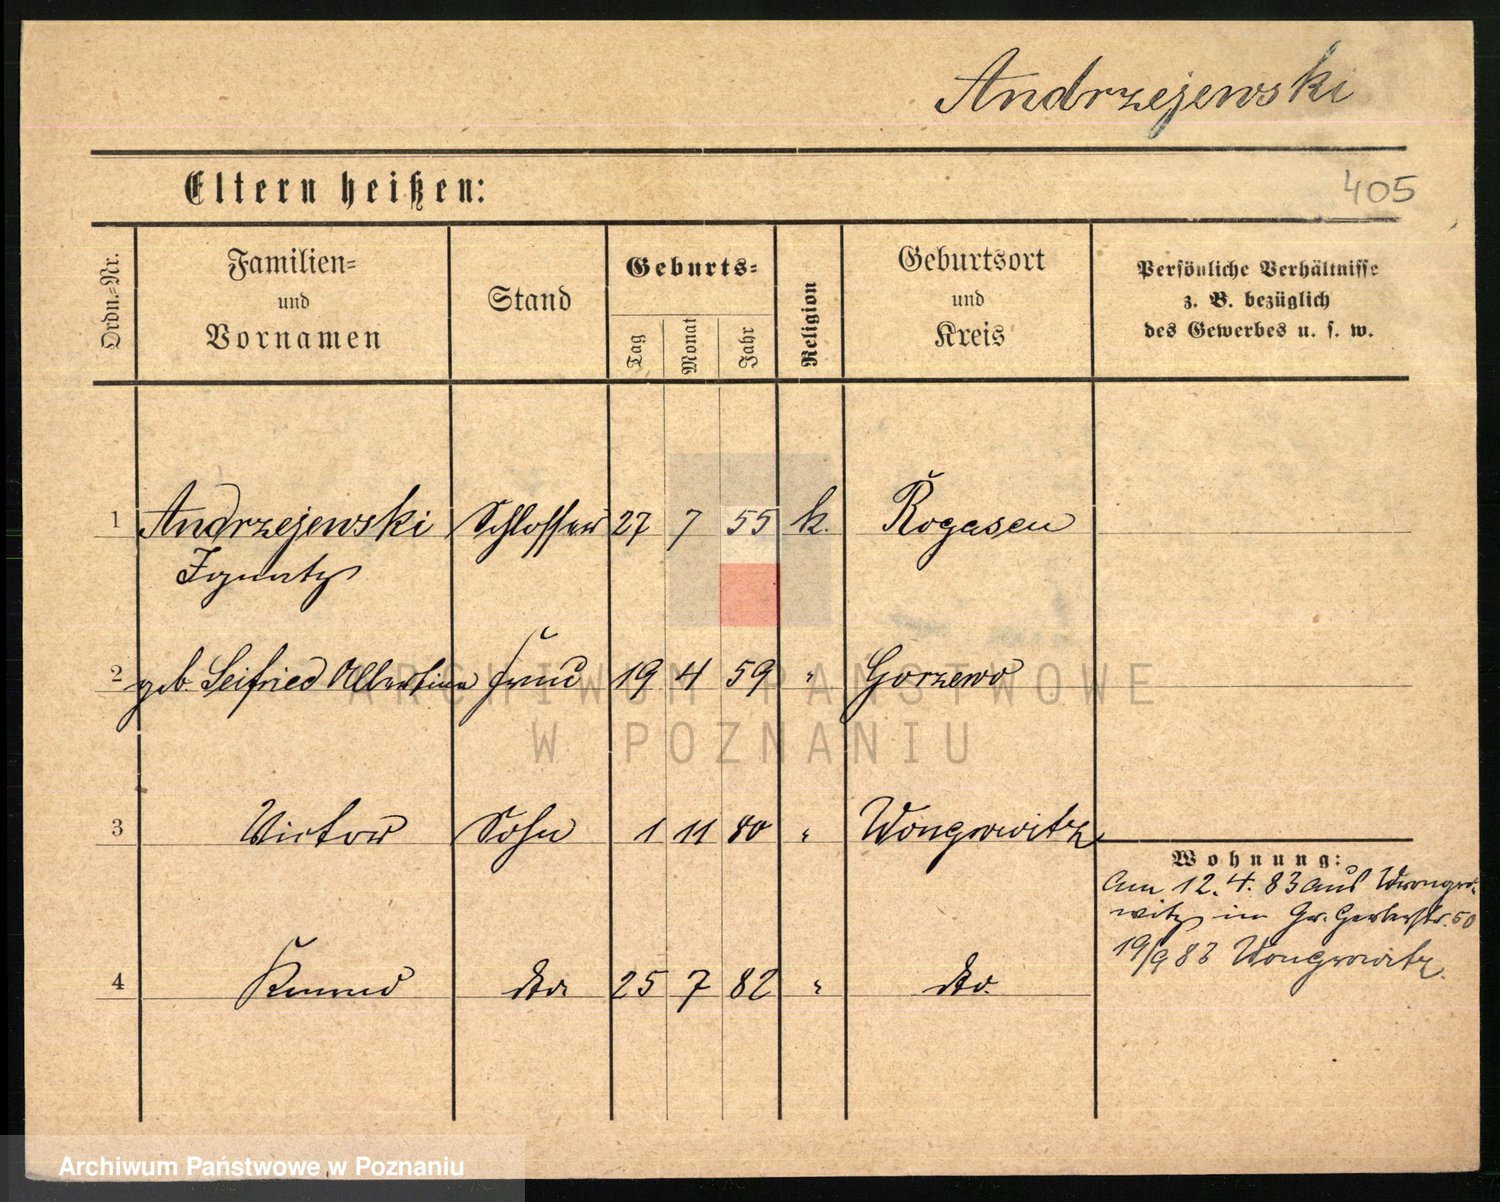 Andrzejewski
Eltern heißen:
405
Ordn.=Nr.
Familien=
und
Vornamen
Stand
Geburts=
Tag
Monat
Jahr
Religion
Geburtsort
und
Kreis
Persönliche Verhältnisse
z. B. bezüglich
des Gewerbes u. s. w.
1 Andrzejewski Schlosser 27 7 55 k. Rogasen
Ignatz
2 geb. Seifried Albertine Frau 19 4 59 " Gorzewo
ARCHIWUM PAŃSTWOWE
W POZNANIU
3 Victor Sohn 1 11 80 " Wongrowitz
Wohnung:
am 12. 4. 83 aus Wongro-
witz in Gr. Gerberstr. 50
19/9 83 Wongrowitz.
4 Konrad dto. 25 7 82 " dto.
Archiwum Państwowe w Poznaniu